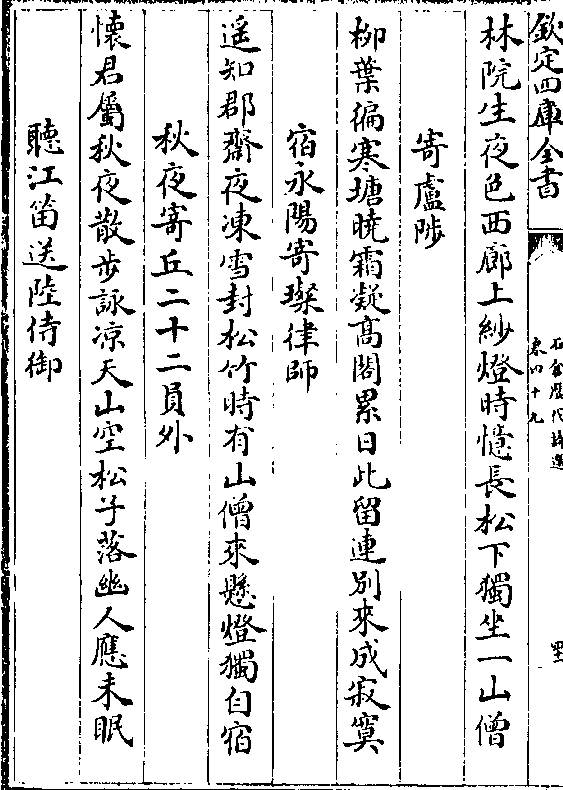 欽定四庫全書
石倉歷代詩選
卷四十九
林院生夜色西廊上紗燈時憶長松下獨坐一山僧
寄盧陟
柳葉徧寒塘曉霜凝高閣累日此留連別來成寂寞
宿永陽寄璨律師
遥知郡齋夜凍雪封松竹時有山僧來懸燈獨自宿
秋夜寄丘二十二員外
懷君屬秋夜散步詠凉天山空松子落幽人應未眠
聽江笛送陸侍御